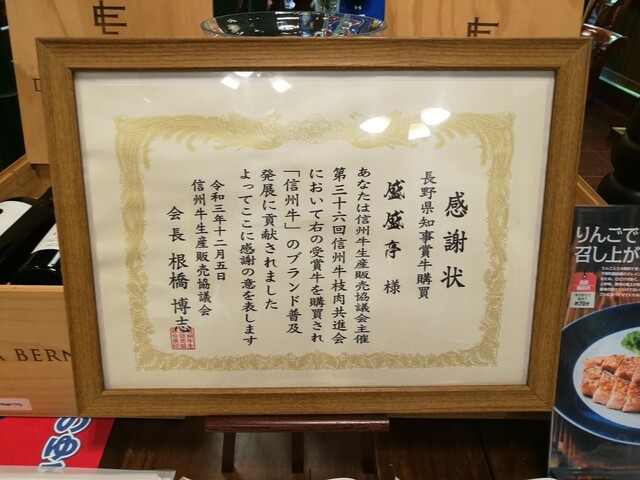 感謝状
長野県知事賞牛購買
盛盛亭 様
あなたは信州牛生産販売協議会主催
第三十六回信州牛枝肉共進会
において右の受賞牛を購買され
「信州牛」のブランド普及
発展に貢献されました
よってここに感謝の意を表します
令和三年十二月五日
信州牛生産販売協議会
会長 根橋博志
りんごで
召し上が
BERN
のゆ